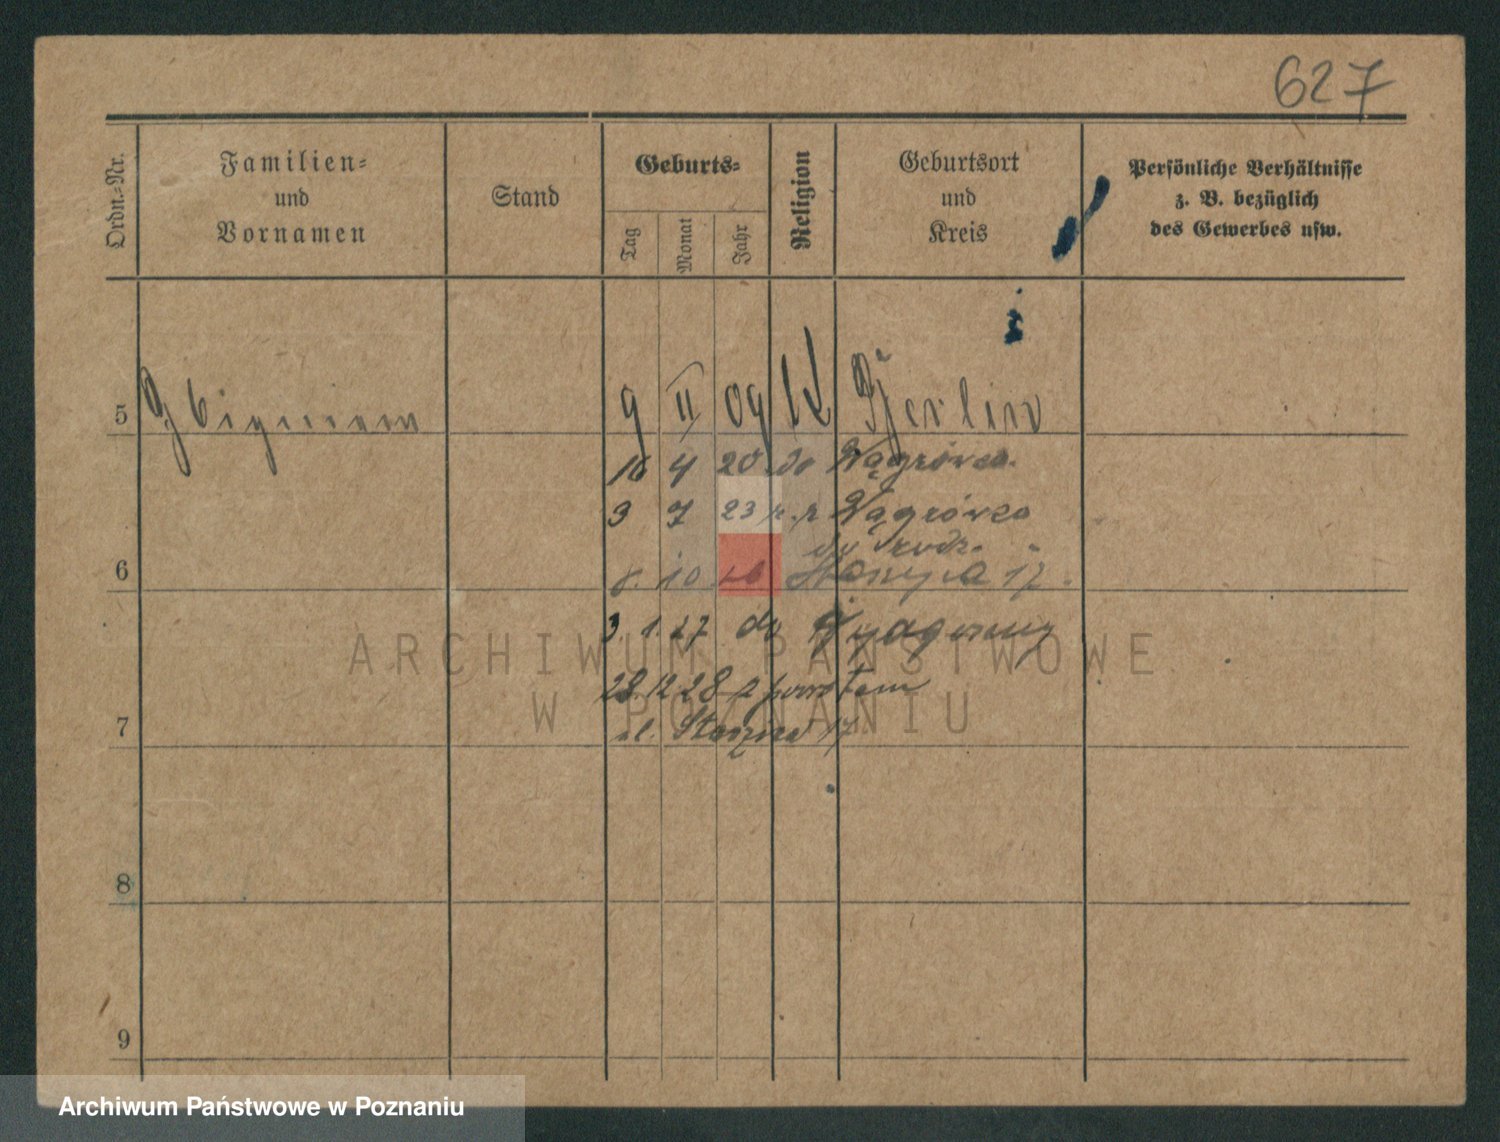 627
Ordn.=Nr.
Familien=
und
Vornamen
Stand
Geburts=
Tag
Monat
Jahr
Religion
Geburtsort
und
Kreis
Persönliche Verhältnisse
z. B. bezüglich
des Gewerbes usw.
5 Zbigniew 9 II 09 K Berlin
16 4 20 do Wągrówca.
3 7 23 z. p. Wągrówca
do rodz.
6 8. 10 26 Staszyca 17.
3. 1. 27 do Bydgoszczy
28. 12 28 z powrotem
7 ul. Staszica 17.
8
9
ARCHIWUM PAŃSTWOWE
W POZNANIU
Archiwum Państwowe w Poznaniu